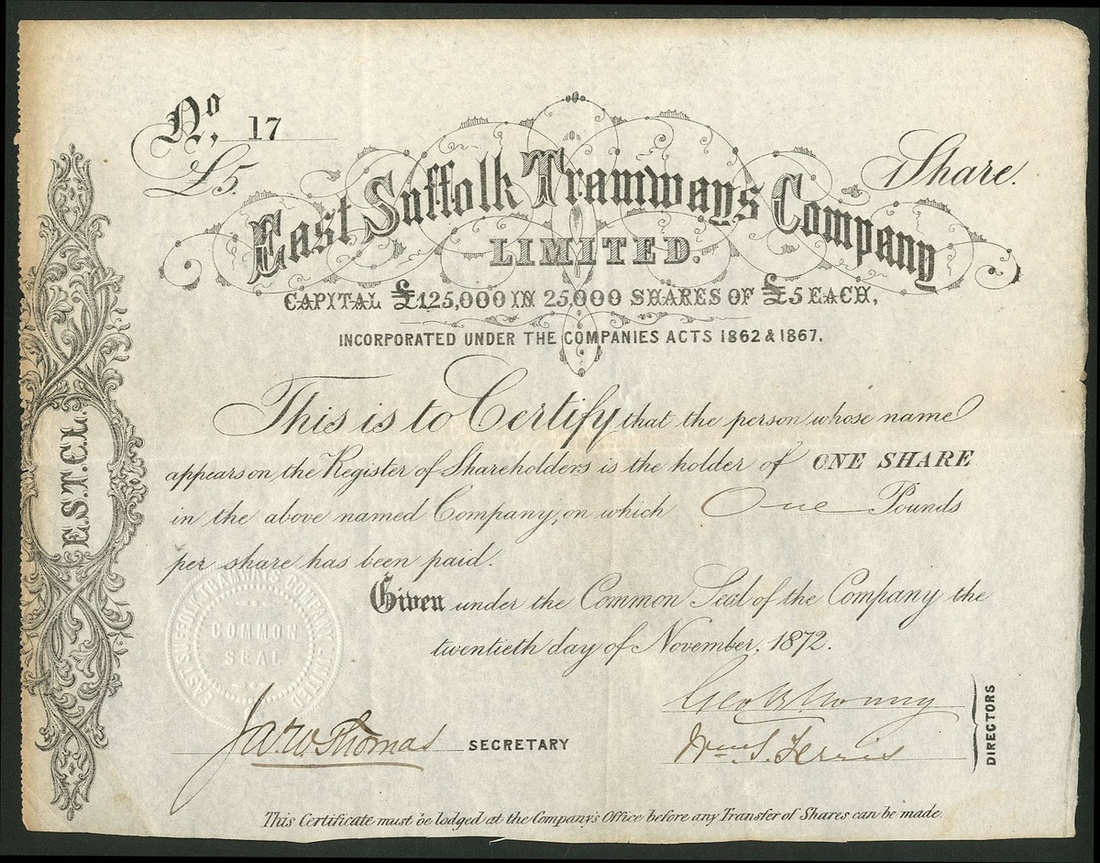 No. 17
£5.
1 Share.
East Suffolk Tramways Company
LIMITED.
CAPITAL £125,000 IN 25,000 SHARES OF £5 EACH,
INCORPORATED UNDER THE COMPANIES ACTS 1862 & 1867.
This is to Certify that the person whose name
appears on the Register of Shareholders is the holder of ONE SHARE
in the above named Company, on which One Pounds
per share has been paid.
Given under the Common Seal of the Company the
twentieth day of November, 1872.
E.S.T.C.L.
EAST SUFFOLK TRAMWAYS COMPANY LIMITED
COMMON
SEAL
Jas. W. Thomas SECRETARY
Geo B
Wm. S. Ferris
DIRECTORS
This Certificate must be lodged at the Company's Office before any Transfer of Shares can be made.